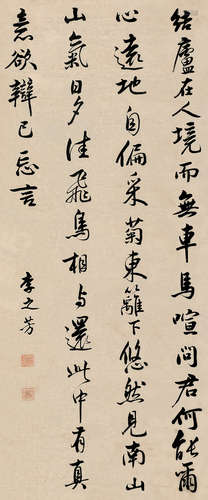 結廬在人境而無車馬喧問君何能爾
心遠地自偏采菊東籬下悠然見南山
山氣日夕佳飛鳥相与還此中有真
意欲辯已忘言
李之芳